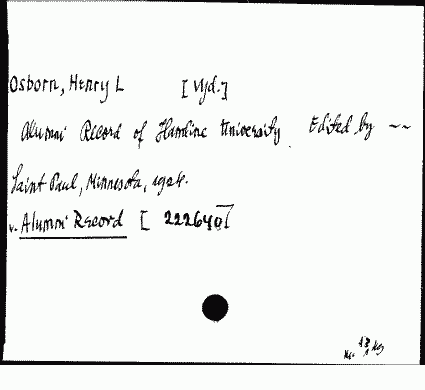 Osborn, Henry L [Vyd.]
Alumni Record of Hamline University. Edited by ~~
Saint Paul, Minnesota, 1924.
v. Alumni Record [222640]